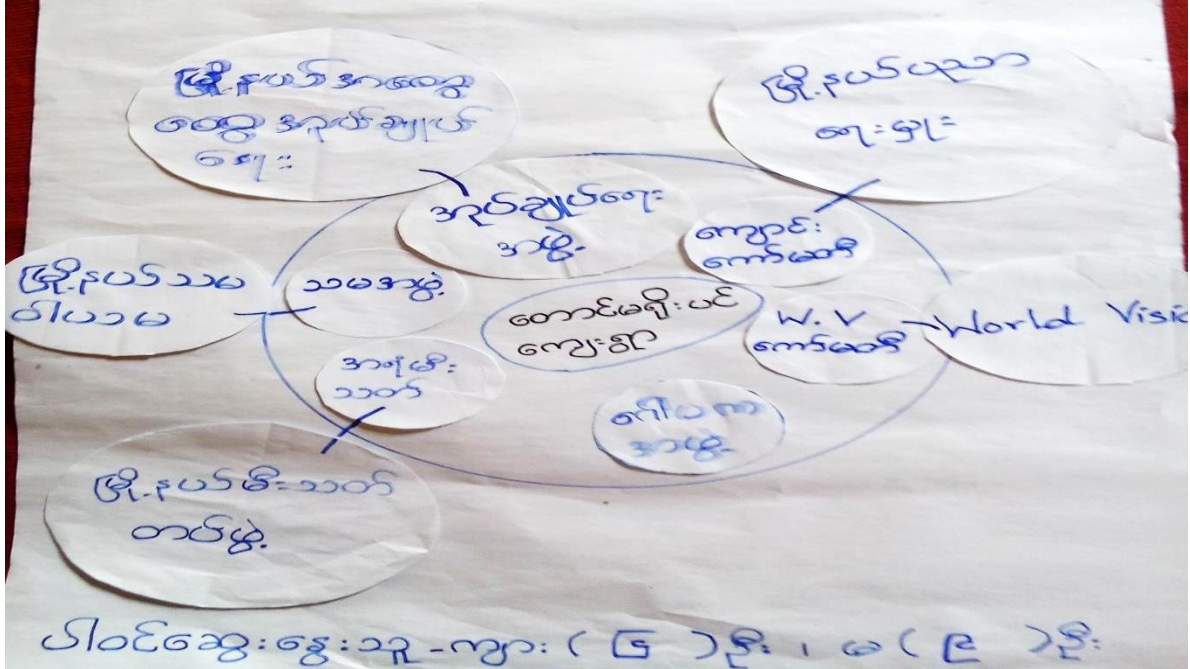 မြို့နယ်အထွေ
ထွေအုပ်ချုပ်
ရေး
မြို့နယ်ပညာ
ရေးမှူး
အုပ်ချုပ်ရေး
အဖွဲ့
ကျောင်း
ကော်မတီ
မြို့နယ်သမ
ဝါယာမ
သမအဖွဲ့
တောင်မရိုးပင်
ကျေးရွာ
W.V
ကော်မတီ
World Visio
အရံမီး
သတ်
အဖွဲ့
မြို့နယ်မီးသတ်
တပ်ဖွဲ့
ပါဝင်ဆွေးနွေးသူ - ကျား ( ၆ ) ဦး ၊ မ ( ၉ ) ဦး